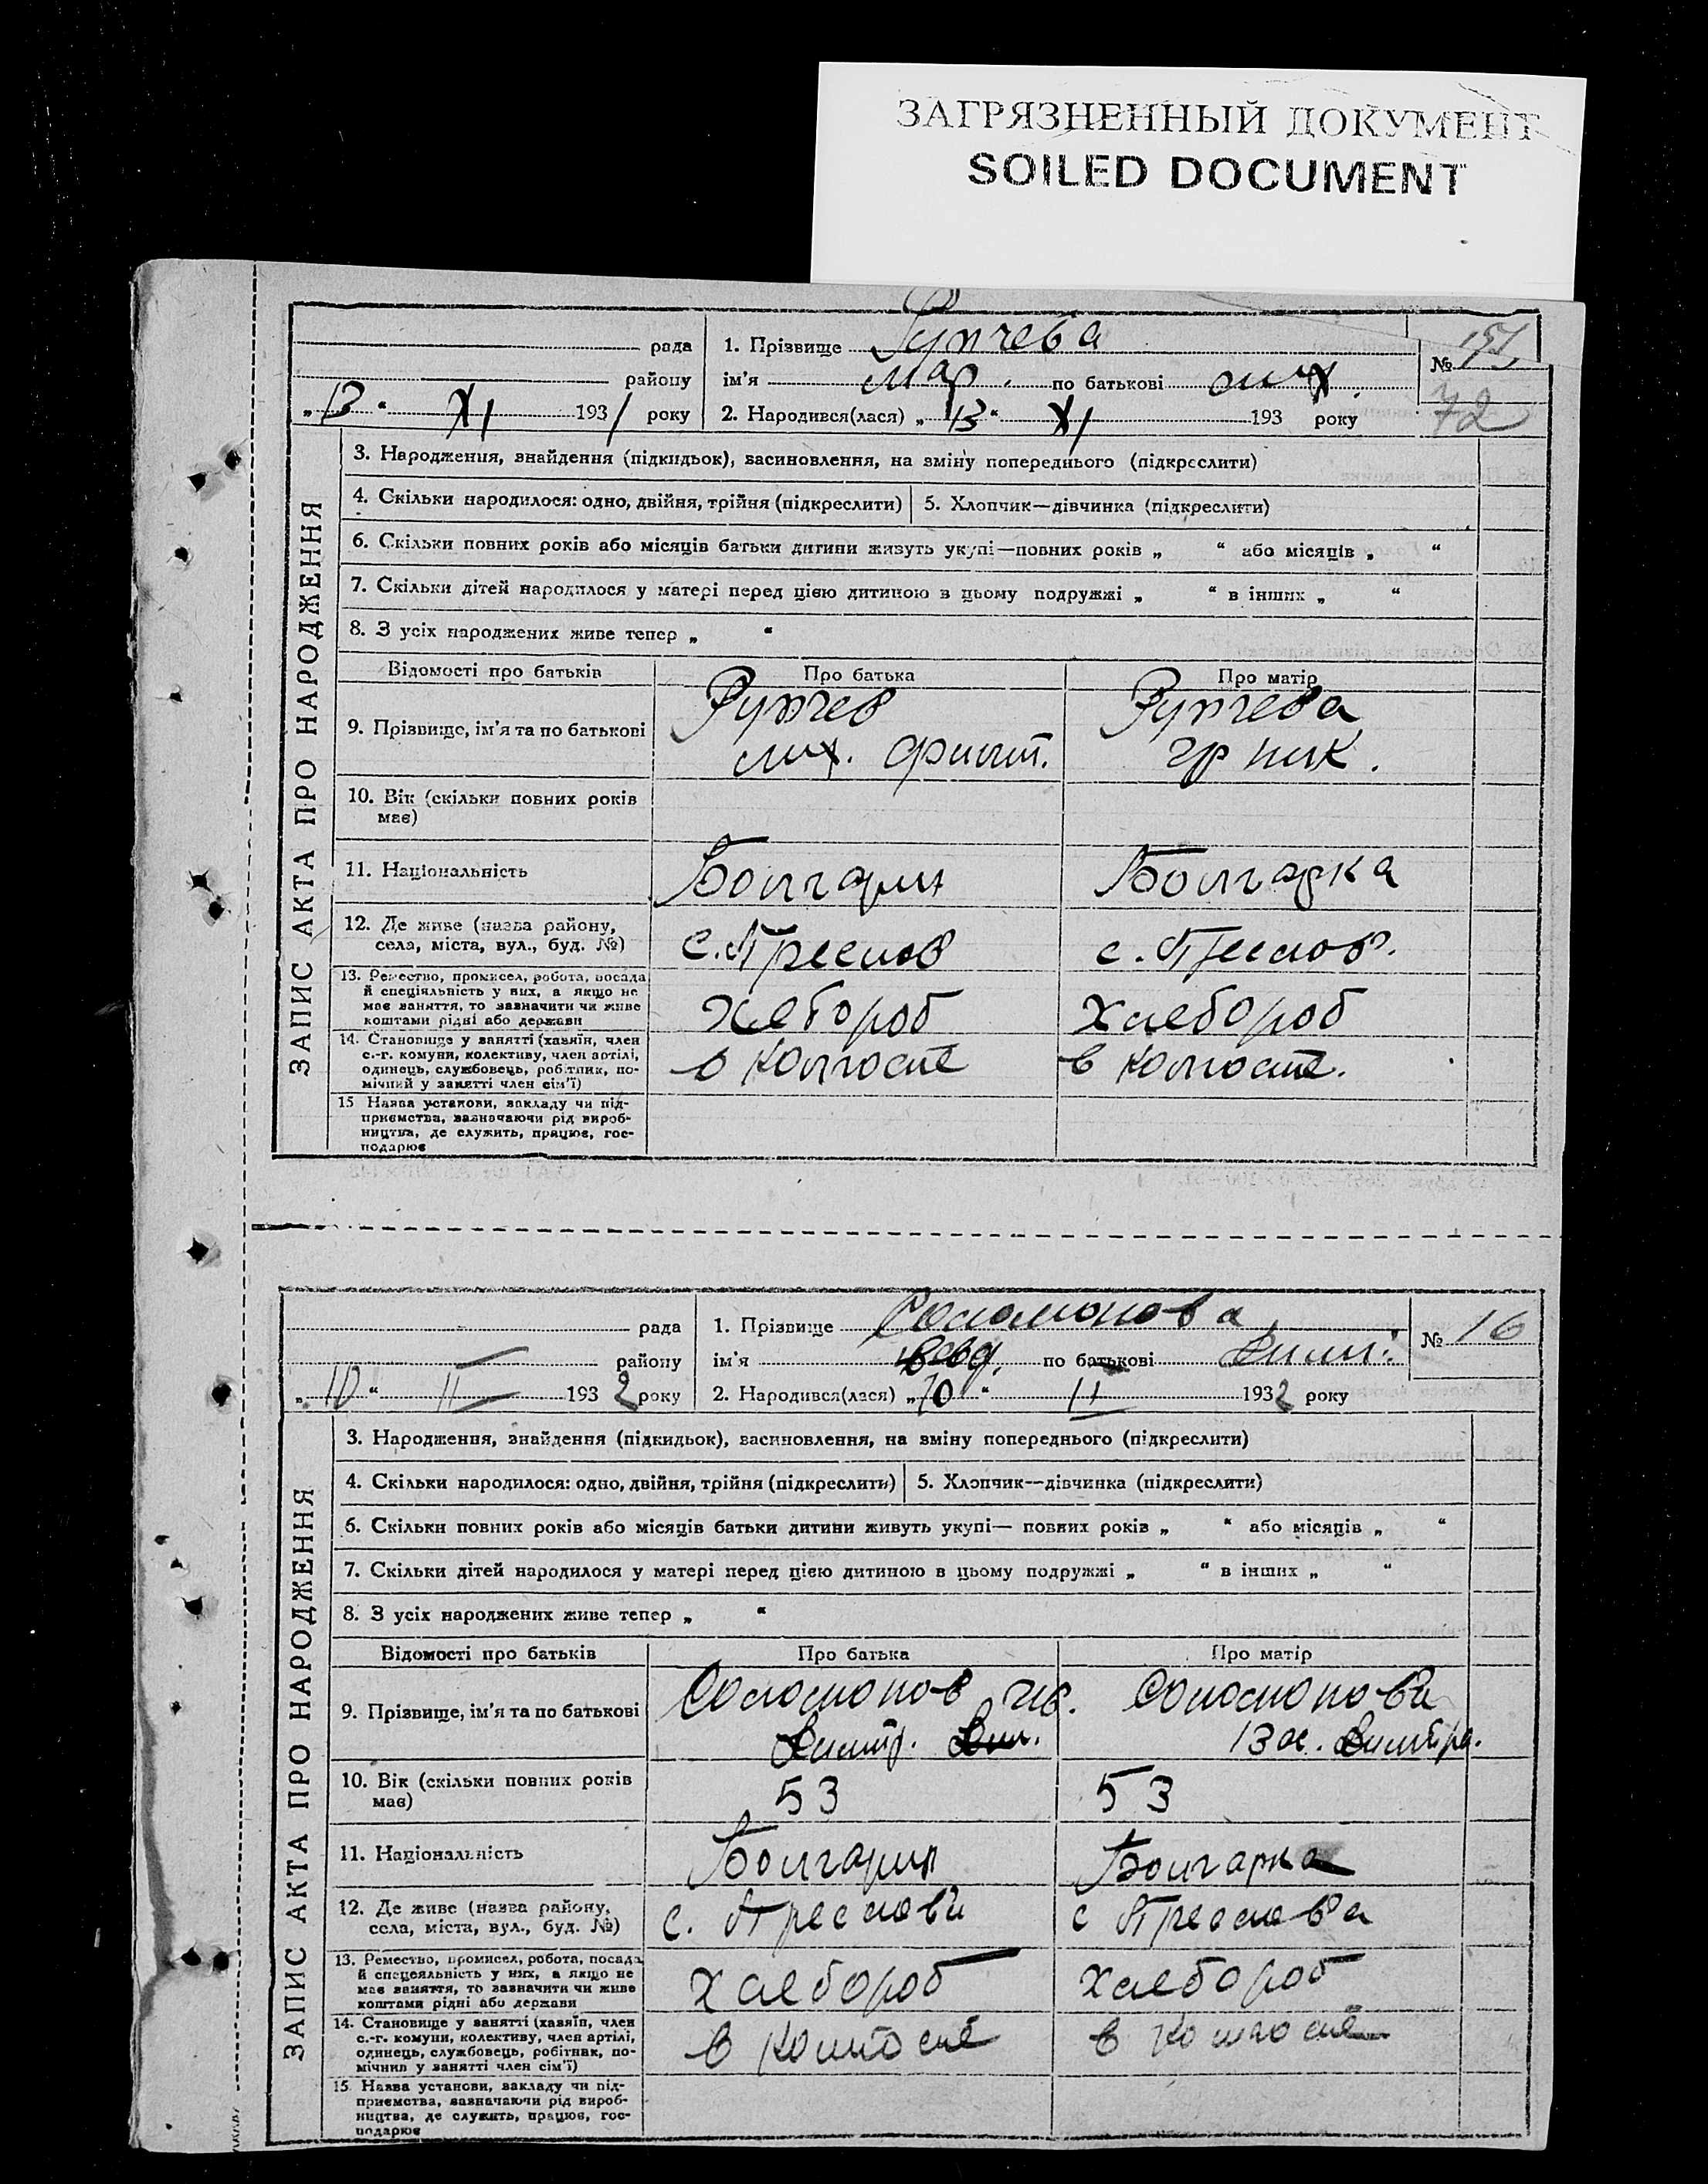 ЗАГРЯЗНЕННЫЙ ДОКУМЕНТ
SOILED DOCUMENT
ЗАПИС АКТА ПРО НАРОДЖЕННЯ
рада
району
„13“ XI 1931 року
1. Прізвище Рупчева
ім'я Мар. по батькові Мих.
2. Народився(лася) „13“ XI 193 року
№
72
3. Народження, знайдення (підкидьок), засиновлення, на зміну попереднього (підкреслити)
4. Скільки народилося: одно, двійня, трійня (підкреслити)
5. Хлопчик—дівчинка (підкреслити)
6. Скільки повних років або місяців батьки дитини живуть укупі—повних років „ “ або місяців „ “
7. Скільки дітей народилося у матері перед цією дитиною в цьому подружжі „ “ в інших „ “
8. З усіх народжених живе тепер „ “
Відомості про батьків Про батька Про матір
9. Прізвище, ім'я та по батькові
Рупчев
Мих. Филип.
Рупчева
Ир Ник.
10. Вік (скільки повних років
має)
11. Національність
Болгарин
Болгарка
12. Де живе (назва району,
села, міста, вул., буд. №)
с. Преслов
с. Преслов.
13. Ремество, промисел, робота, посада
й спеціяльність у них, а якщо не
має заняття, то зазначити чи живе
коштами рідні або держави
Хлебороб
Хлебороб
14. Становище у занятті (хазяїн, член
с.-г. комуни, колективу, член артілі,
одинець, службовець, робітник, по-
мічний у занятті член сім'ї)
в колгоспе
в колгоспе.
15 Назва установи, закладу чи під-
приємства, зазначаючи рід вироб-
ництва, де служить, працює, гос-
подарює
ЗАПИС АКТА ПРО НАРОДЖЕННЯ
рада
району
„10“ II 1932 року
1. Прізвище Соломонова
ім'я по батькові Дим.
2. Народився(лася) „10“ II 1932 року
№ 16
3. Народження, знайдення (підкидьок), засиновлення, на зміну попереднього (підкреслити)
4. Скільки народилося: одно, двійня, трійня (підкреслити)
5. Хлопчик—дівчинка (підкреслити)
6. Скільки повних років або місяців батьки дитини живуть укупі— повних років „ “ або місяців „ “
7. Скільки дітей народилося у матері перед цією дитиною в цьому подружжі „ “ в інших „ “
8. З усіх народжених живе тепер „ “
Відомості про батьків Про батька Про матір
9. Прізвище, ім'я та по батькові
Соломонов
Димитр.
Соломонова
10. Вік (скільки повних років
має)
53
53
11. Національність
Болгарин
Болгарка
12. Де живе (назва району,
села, міста, вул., буд. №)
с. Преслова
с Преслова
13. Ремество, промисел, робота, посада
й спецеяльність у них, а якщо не
має заняття, то зазначити чи живе
коштами рідні або держави
Хлебороб
хлебороб
14. Становище у занятті (хазяїн, член
с.-г. комуни, колективу, член артілі,
одинець, службовець, робітник, по-
мічний у занятті член сім'ї)
в колгоспе
в колгоспе
15 Назва установи, закладу чи під-
приємства, зазначаючи рід вироб-
ництва, де служить, працює, гос-
подарює